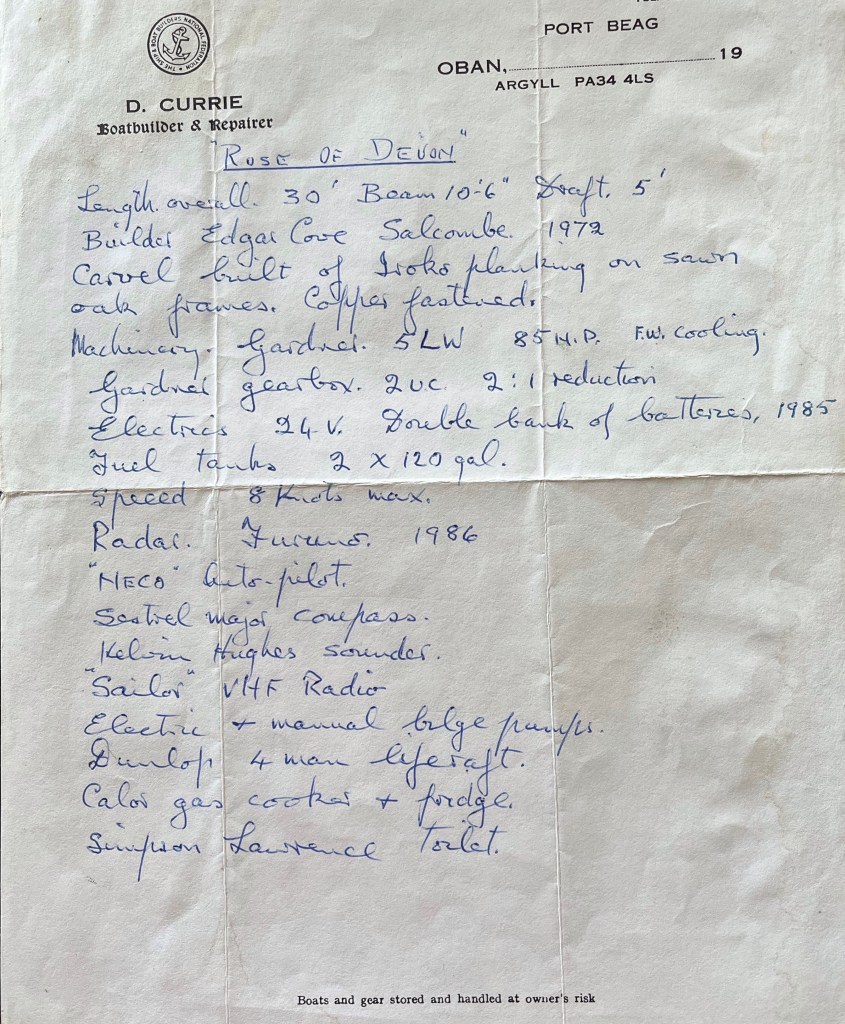 THE SHIP & BOAT BUILDERS NATIONAL FEDERATION
PORT BEAG
OBAN, 19
ARGYLL PA34 4LS
D. CURRIE
Boatbuilder & Repairer
"ROSE OF DEVON"
Length. overall. 30' Beam 10'6" Draft. 5'
Builder Edgar Cove Salcombe. 1972
Carvel built of Iroko planking on sawn
oak frames. Copper fastened.
Machinery. Gardner. 5LW 85 H.P. F.W. cooling.
Gardner gearbox. 2 u.c. 2:1 reduction
Electrics 24 V. Double bank of batteries, 1985
Fuel tanks 2 x 120 gal.
Speed 8 Knots max.
Radar. Furuno. 1986
"NECO" Auto-pilot.
Sestrel major compass.
Kelvin Hughes sounder.
"Sailor" VHF Radio
Electric + manual bilge pumps.
Dunlop 4 man liferaft.
Calor gas cooker + fridge.
Simpson Lawrence Toilet.
Boats and gear stored and handled at owner's risk